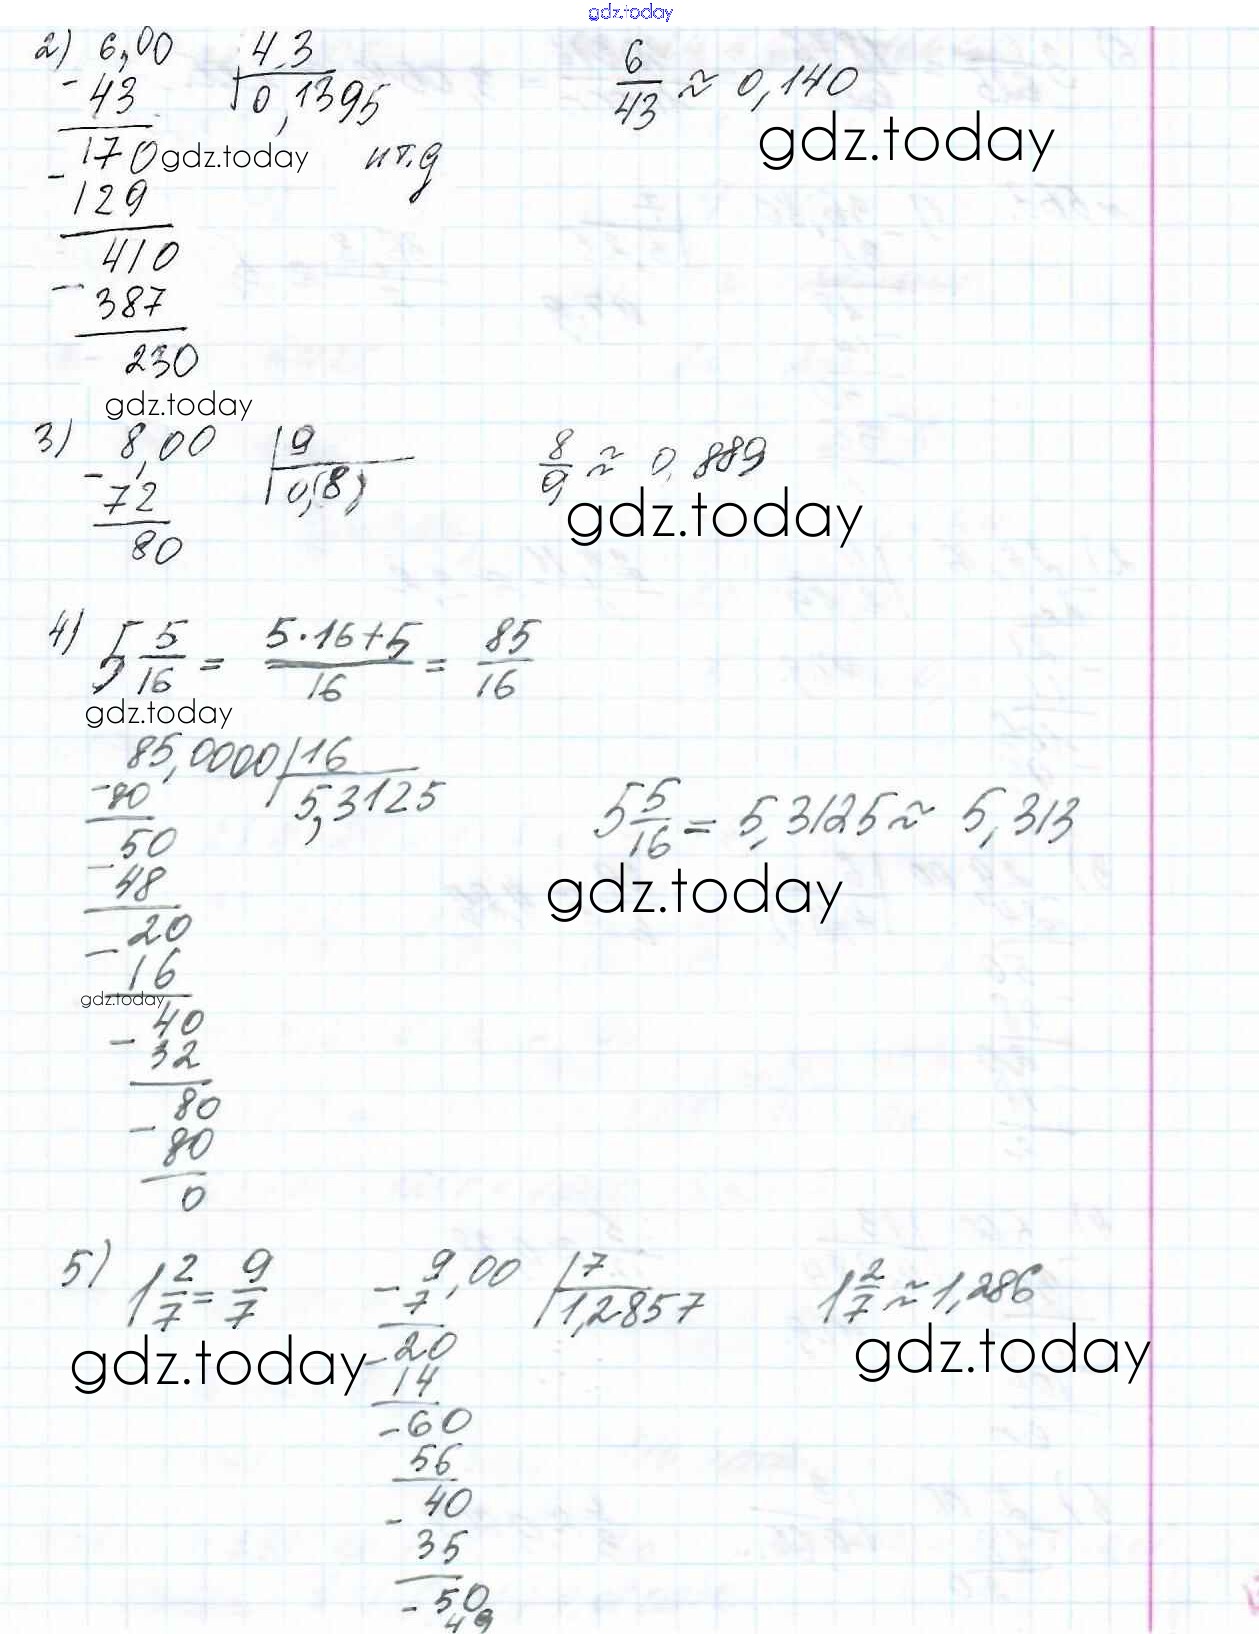 gdz.today
2) 6,00 | 43
- 43 0,1395
170 и т.д
- 129
410
- 387
230
6/43 ≈ 0,140
gdz.today
gdz.today
gdz.today
3) 8,00 | 9
- 72 0,(8)
80
8/9 ≈ 0,889
gdz.today
4) 5 5/16 = (5·16+5)/16 = 85/16
gdz.today
85,0000 | 16
- 80 5,3125
50
- 48
20
- 16
gdz.today
40
- 32
80
- 80
0
5 5/16 = 5,3125 ≈ 5,313
gdz.today
5) 1 2/7 = 9/7
gdz.today
9,00 | 7
- 7 1,2857
20
- 14
- 60
56
- 40
35
- 50
49
1 2/7 ≈ 1,286
gdz.today